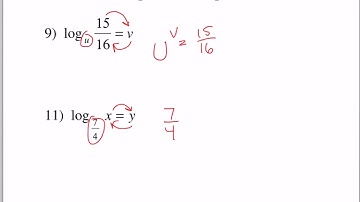 9) log_u 15/16 = v    U^v = 15/16
11) log_7/4 x = y    7/4